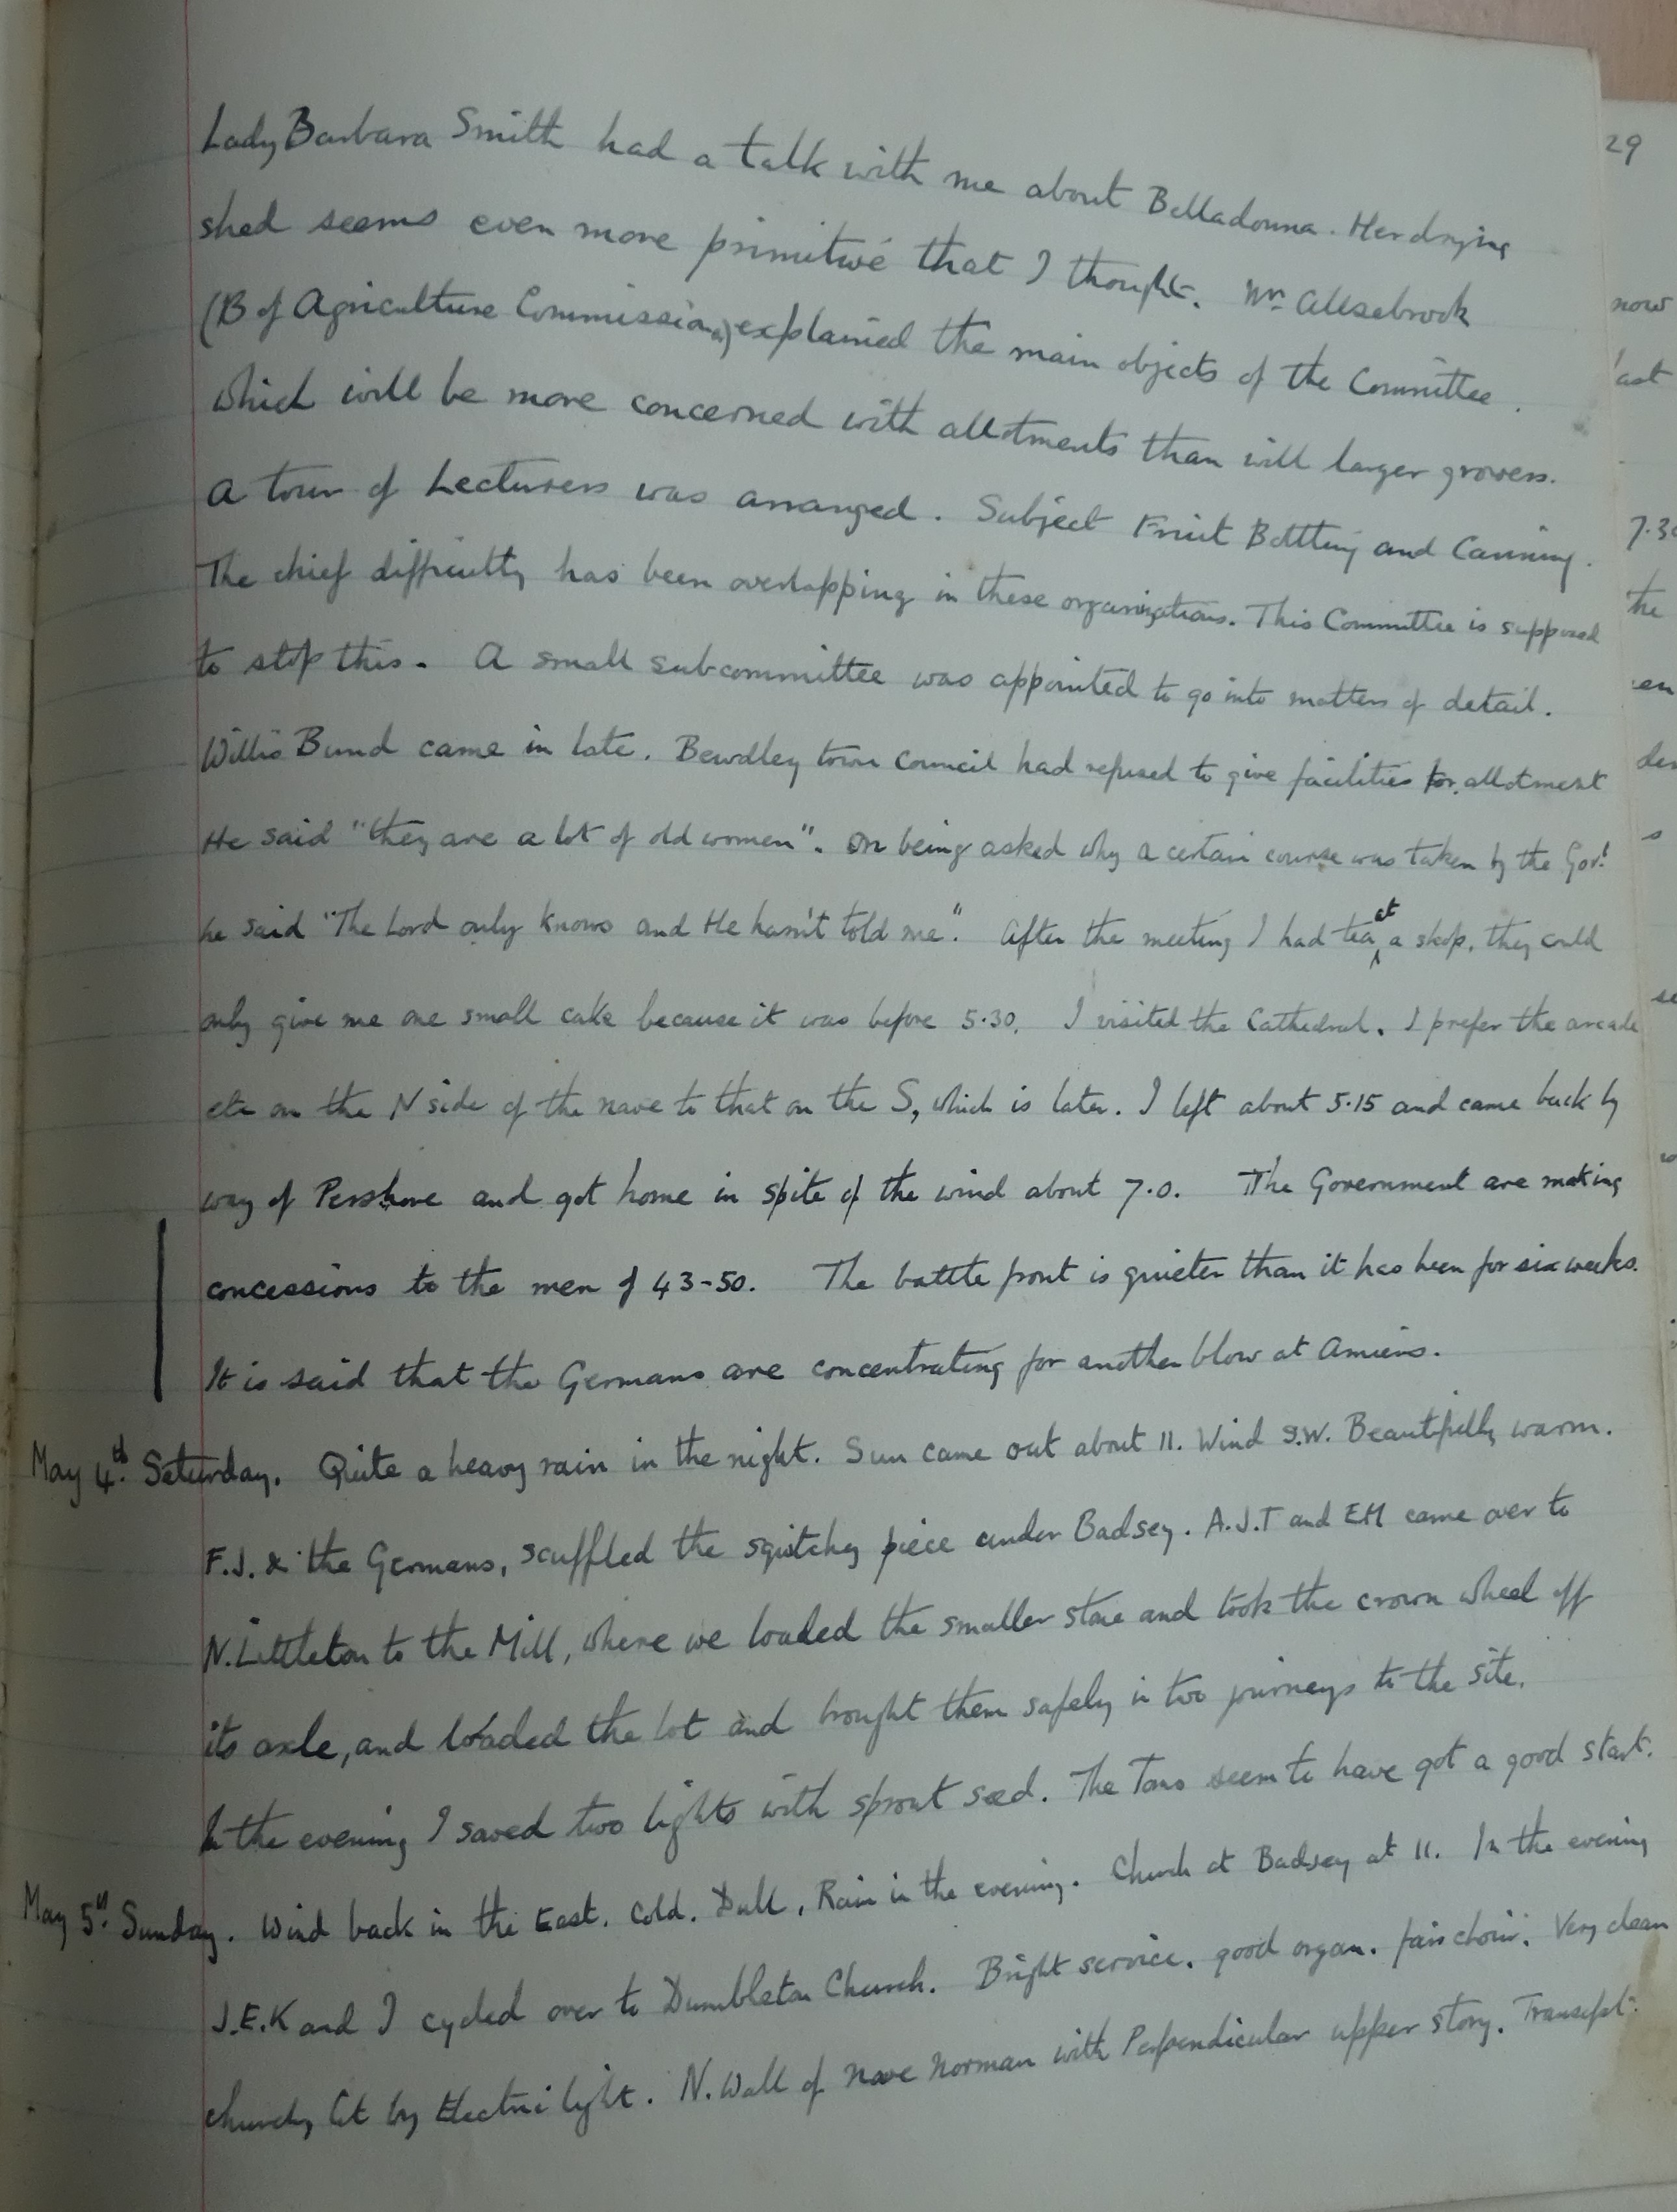 Lady Barbara Smith had a talk with me about Belladonna. Her drying
shed seems even more primitive that I thought. Mr. Allsebrook
(B of Agriculture Commission) explained the main objects of the Committee.
which will be more concerned with allotments than will larger growers.
A tour of Lecturers was arranged. Subject Fruit Bottling and Canning.
The chief difficulty has been overlapping in these organizations. This Committee is supposed
to stop this. A small subcommittee was appointed to go into matters of detail.
Willis Bund came in late. Bewdley town Council had refused to give facilities for allotment
He said "they are a lot of old women". On being asked why a certain course was taken by the Govt
he said "The Lord only knows and He hasn't told me". After the meeting I had tea at a shop, they could
only give me one small cake because it was before 5.30. I visited the Cathedral. I prefer the arcade
etc on the N side of the nave to that on the S, which is later. I left about 5.15 and came back by
way of Pershore and got home in spite of the wind about 7.0. The Government are making
concessions to the men of 43-50. The battle front is quieter than it has been for six weeks.
It is said that the Germans are concentrating for another blow at Amiens.
May 4th. Saturday. Quite a heavy rain in the night. Sun came out about 11. Wind S.W. Beautifully warm.
F.J. & the Germans, scuffled the squitchy piece under Badsey. A.J.T and EM came over to
N. Littleton to the Mill, where we loaded the smaller stone and took the crown wheel off
its axle, and loaded the lot and brought them safely in two journeys to the site.
In the evening I sowed two lights with sprout seed. The Toms seem to have got a good start.
May 5th. Sunday. Wind back in the East. Cold. Dull, Rain in the evening. Church at Badsey at 11. In the evening
J.E.K and I cycled over to Dumbleton Church. Bright service. good organ. fair choir. Very clean
church, lit by Electric light. N. Wall of nave Norman with Perpendicular upper story. Transept
29
now
last
7.30
the